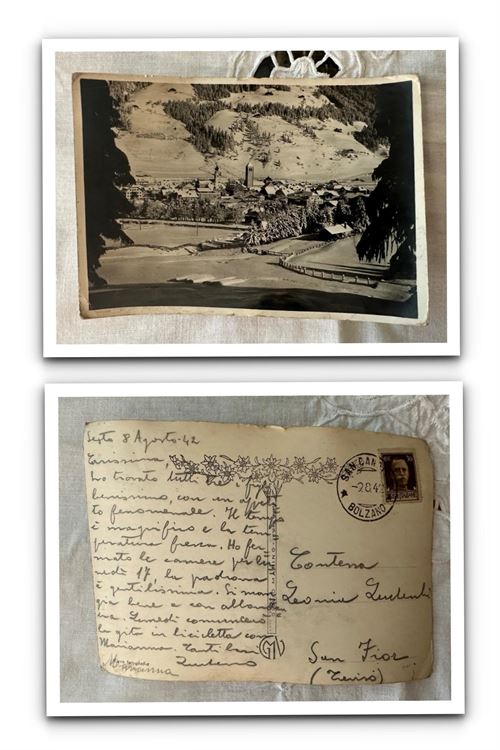 Sesto 8 Agosto-42
Carissima,
ho trovato tutti
benissimo, con un
to fenomenale. Il
è magnifico e la tem
peratura fresca. Ho fer
mato le camere per lu
nedì 17, la padrona
è gentilissima. Si man
gia bene e con abbon
za. Lunedì
la gita in bicicletta con
Marianna. Tanti baci
Marianna
SAN CAN
-2.8.42
BOLZANO
Contessa
Leonia
San Fior
(Treviso)